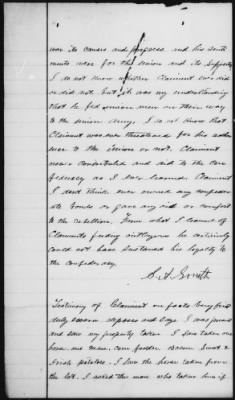 war its causes and progress, and his senti
ments were for the union and its supporters
I do not know whether Claimant ever did
or did not. But it was my understanding
that he fed union men on their way
to the union Army. I do not know that
Claimant was ever threatened for his adher
ence to the union or not. Claimant
never contributed and aid to the Con
federacy as I ever learned. Claimant
I dont think ever owned any confeder
ate bonds or gave any aid or comfort
to the rebellion. From what I learned of
Claimants feeling outlyers he certainly
could not have sustained his loyalty to
the Confederacy.
S. A. Smith
Testimony of Claimant on facts being first
duly sworn deposes and says I was present
and saw my property taken. I saw taken one
horse one mare, corn fodder, Bacon and
Irish potatoes. I saw the horse taken from
the lot. I asked the man who taken him if